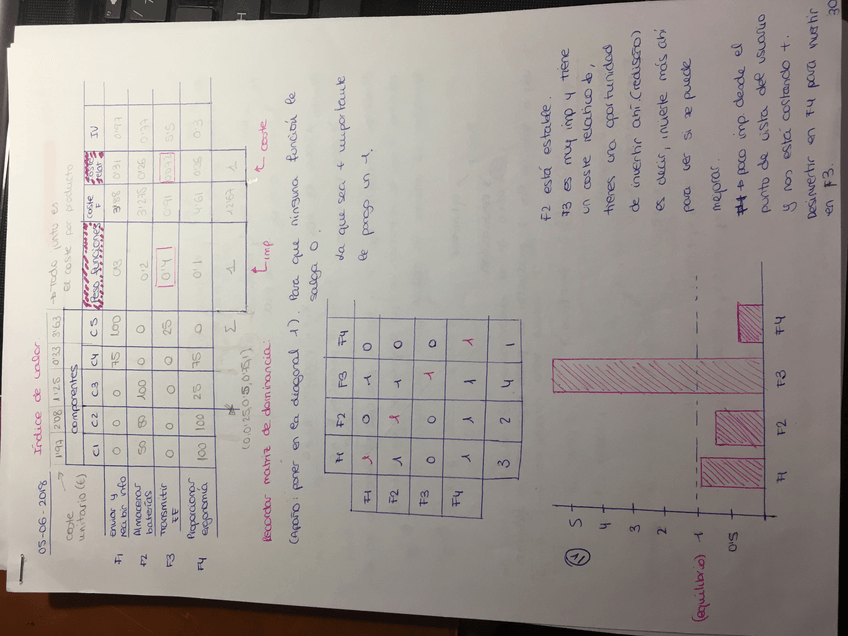 05-06-2018 Índice de valor
coste unitario (€) → 1'97 2'08 1'25 0'33 3'63 → Todo junto es el coste por producto
componentes
C1 C2 C3 C4 C5 Peso funciones coste F IV
F1 enviar y recibir info 0 0 0 75 100 0'3 3'88 0'31 0'97
F2 Almacenar baterías 50 80 100 0 0 0'2 3'275 0'26 0'77
F3 Transmitir EF 0 0 0 0 25 0'4
F4 Proporcionar ergonomía 100 100 25 75 0 0'1 4'61
Σ 1 1
↑ imp ↑ coste
Recordar matriz de dominancia:
(Apaño: poner en la diagonal 1). Para que ninguna función le
salga 0.
F1 F2 F3 F4
F1 1 0 1 0
F2 1 1 1 0
F3 0 0 1 0
F4 1 1 1 1
3 2 4 1
La que sea + importante
le pongo un 1.
1)
5
4
3
2
(equilibrio) 1
0'5
F1 F2 F3 F4
F2 está estable.
F3 es muy imp y tiene
un coste relativo b,
tienes una oportunidad
de invertir ahí (rediseño)
es decir, invierte más ahí
para ver si se puede
mejorar.
F4 → poco imp desde el
punto de vista del usuario
y nos está costando +.
Desinvertir en F4 para invertir
en F3.
30